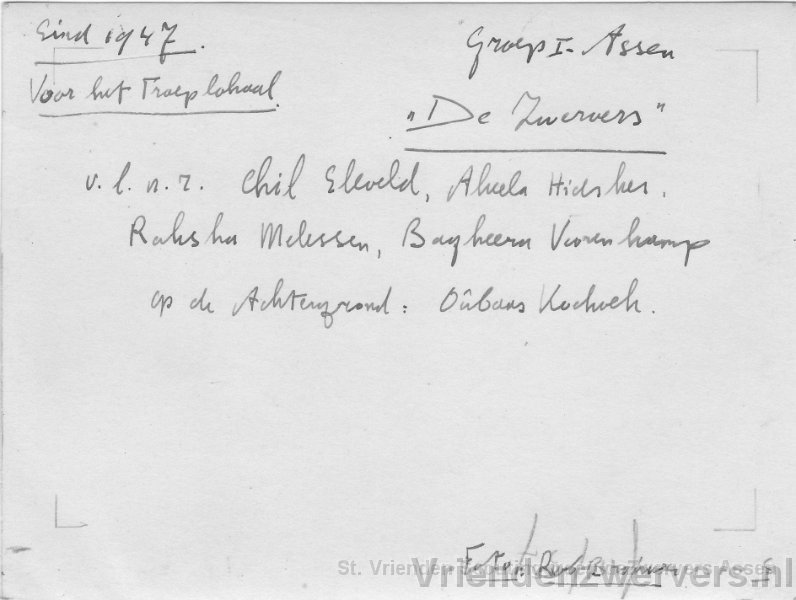 Eind 1947.
Groep I - Assen
Voor het Troeplokaal.
"De Zwervers"
v.l.n.r. Chil Eleveld, Akela Hidskes.
Raksha Melessen, Bagheera Vurenkamp
op de Achtergrond: Oûbaas Kochoek.
Foto:
St. Vrienden Zwervers Assen
Vriendenzwervers.nl